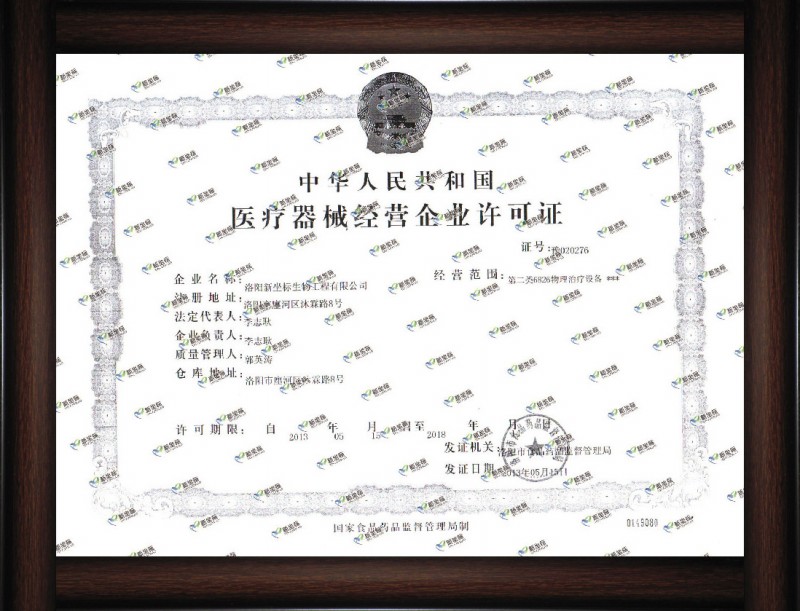 中华人民共和国
医疗器械经营企业许可证
证号:020276
企业名称:洛阳新坐标生物工程有限公司
经营范围:第二类6826物理治疗设备 ***
注册地址:洛阳市瀍河区沐霖路8号
法定代表人:李志耿
企业负责人:李志耿
质量管理人:郭英涛
仓库地址:洛阳市瀍河区沐霖路8号
许可期限: 自 2013 年 05 月 15 日至 2018 年 月
发证机关:洛阳市食品药品监督管理局
发证日期:2013年05月15日
国家食品药品监督管理局制
0149080
新坐标